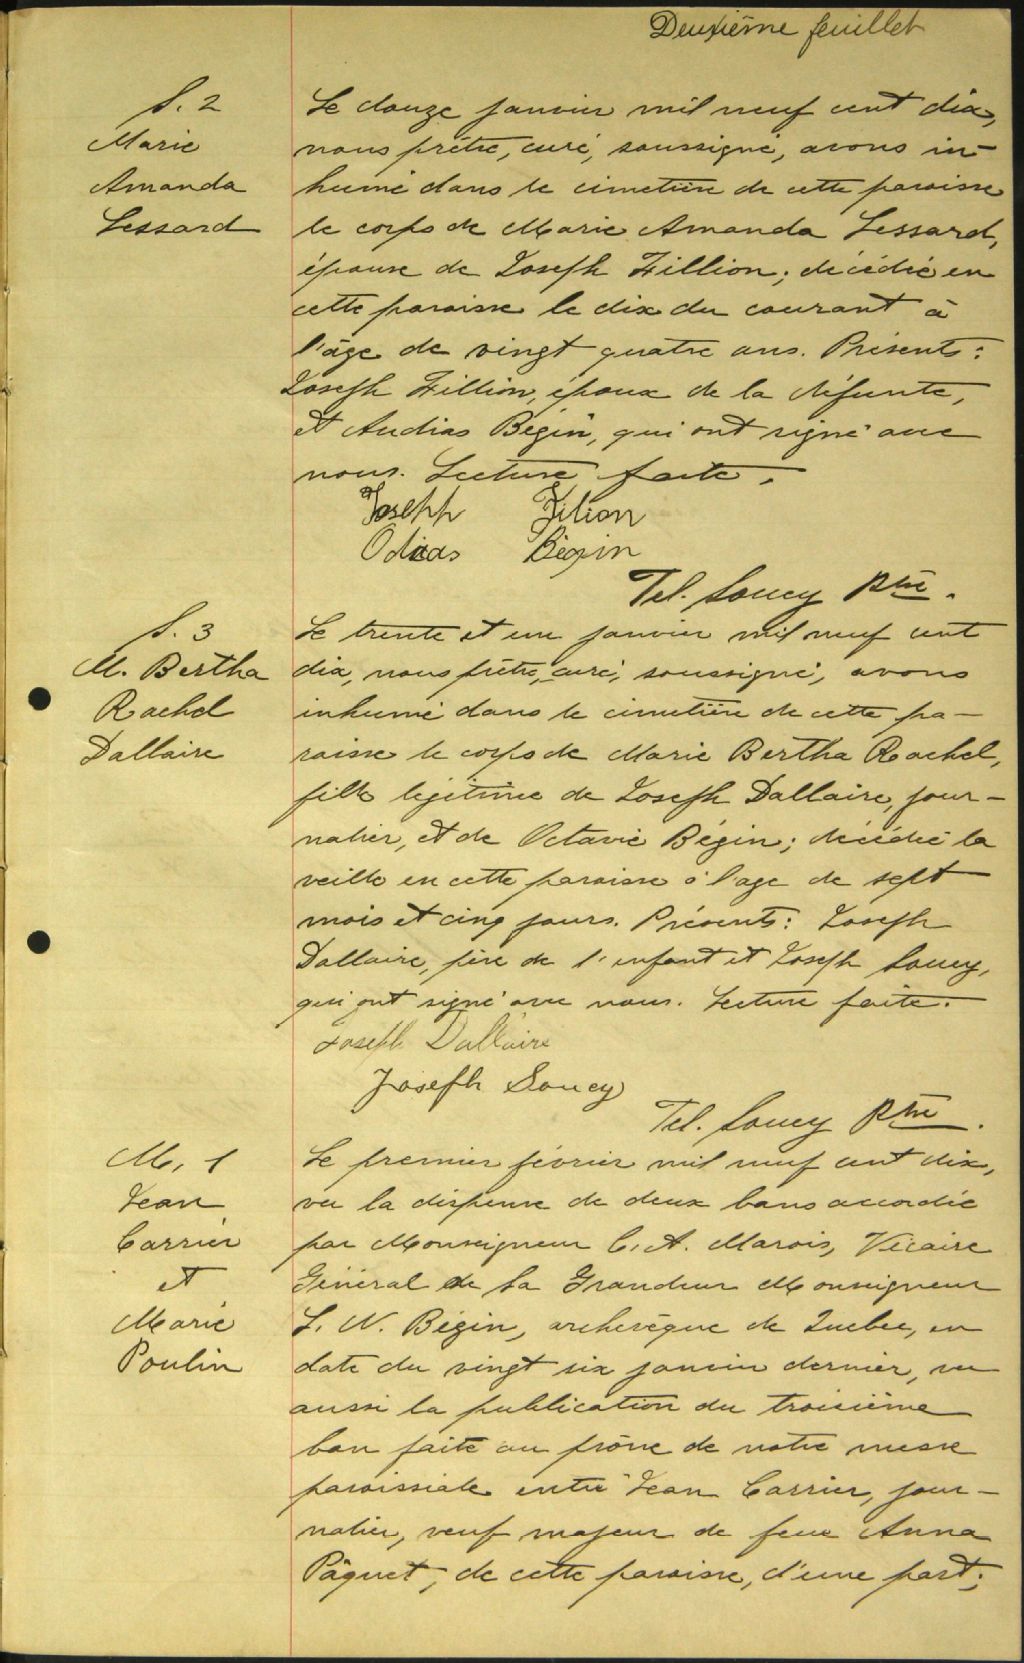 Deuxième feuillet
S. 2
Marie
Amanda
Lessard
Le douze janvier mil neuf cent dix,
nous prêtre, curé, soussigné, avons in-
humé dans le cimetière de cette paroisse
le corps de Marie Amanda Lessard,
épouse de Joseph Fillion; décédée en
cette paroisse le dix du courant à
l'âge de vingt quatre ans. Présents:
Joseph Fillion, époux de la défunte,
et Audias Bégin, qui ont signé avec
nous. Lecture faite.
Joseph Filion
Odias Bégin
Tel. Soucy Ptre.
S. 3
M. Bertha
Rachel
Dallaire
Le trente et un janvier mil neuf cent
dix, nous prêtre, curé, soussigné, avons
inhumé dans le cimetière de cette pa-
roisse le corps de Marie Bertha Rachel,
fille légitime de Joseph Dallaire, jour-
nalier, et de Octavie Bégin; décédée la
veille en cette paroisse à l'age de sept
mois et cinq jours. Présents: Joseph
Dallaire, père de l'enfant et Joseph Soucy,
qui ont signé avec nous. Lecture faite.
Joseph Dallaire
Joseph Soucy
Tel. Soucy Ptre.
M. 1
Jean
Carrier
et
Marie
Poulin
Le premier février mil neuf cent dix,
vu la dispense de deux bans accordée
par Monseigneur C. A. Marois, Vicaire
Général de Sa Grandeur Monseigneur
L. N. Bégin, archevêque de Québec, en
date du vingt six janvier dernier, vu
aussi la publication du troisième
ban faite au prône de notre messe
paroissiale entre Jean Carrier, jour-
nalier, veuf majeur de feue Anna
Pâquet, de cette paroisse, d'une part;